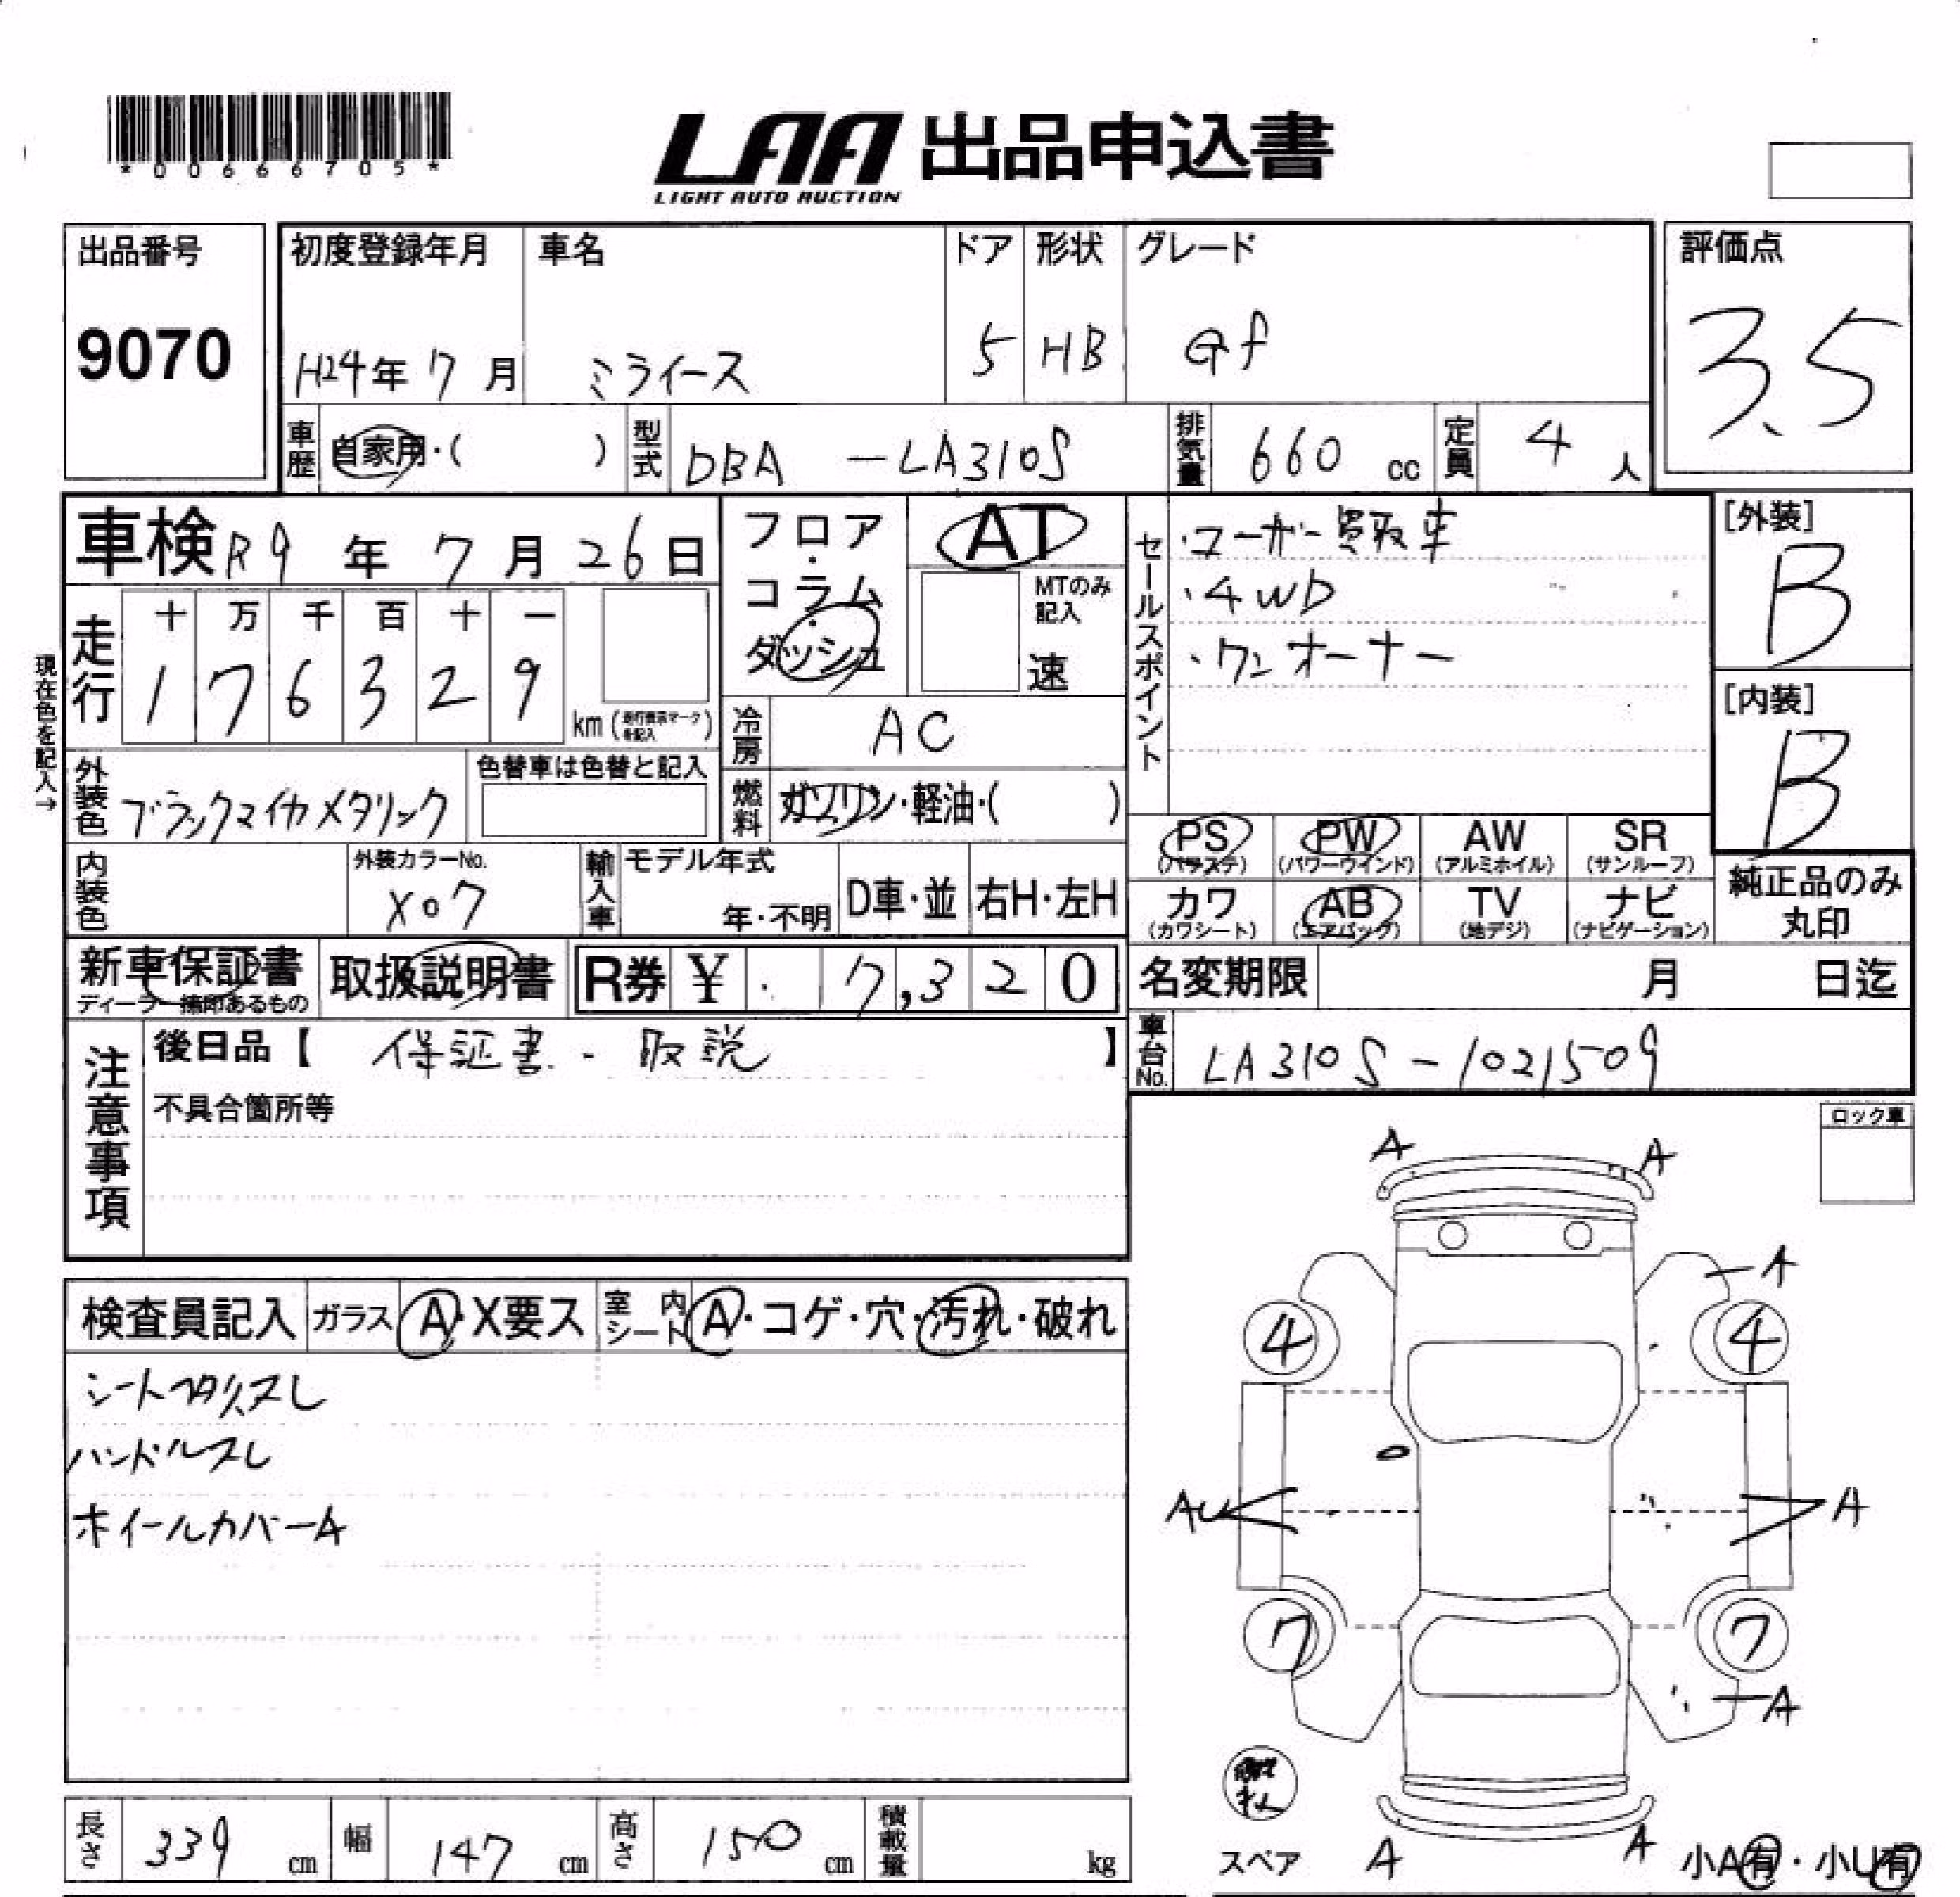 *00666705*
LAA 出品申込書
LIGHT AUTO AUCTION
出品番号 初度登録年月 車名 ドア 形状 グレード 評価点
9070 H24年 7月 ミライース 5 HB Gf 3.5
車歴 自家用・( ) 型式 DBA -LA310S 排気量 660 cc 定員 4 人
車検 R9年 7月 26日 フロア・コラム・ダッシュ AT
MTのみ記入 速
セールスポイント
・ユーザー買取車
・4WD
・ワンオーナー
[外装]
B
[内装]
B
現在色を記入→
走行 十 万 千 百 十 一
1 7 6 3 2 9 km (走行表示マークを記入)
冷房 AC
外装色 ブラックマイカメタリック 色替車は色替と記入
燃料 ガソリン・軽油・( )
PS (パワステ) PW (パワーウインド) AW (アルミホイル) SR (サンルーフ)
カワ (カワシート) AB (エアバック) TV (地デジ) ナビ (ナビゲーション)
純正品のみ丸印
内装色 外装カラーNo. X07 輸入車 モデル年式 年・不明 D車・並 右H・左H
新車保証書 取扱説明書 R券 ¥ 7,320
ディーラー捺印あるもの
名変期限 月 日迄
注意事項 後日品【 保証書・取説 】
車台No. LA310S-1021509
不具合箇所等
ロック車
A A
A
4 4
AU A
7 7
A
A A
検査員記入 ガラス A・X要ス 室内シート A・コゲ・穴・汚れ・破れ
シートヘタリ、スレ
ハンドルスレ
ホイールカバーA
スペア 小A有・小U有
長さ 339 cm 幅 147 cm 高さ 150 cm 積載量 kg